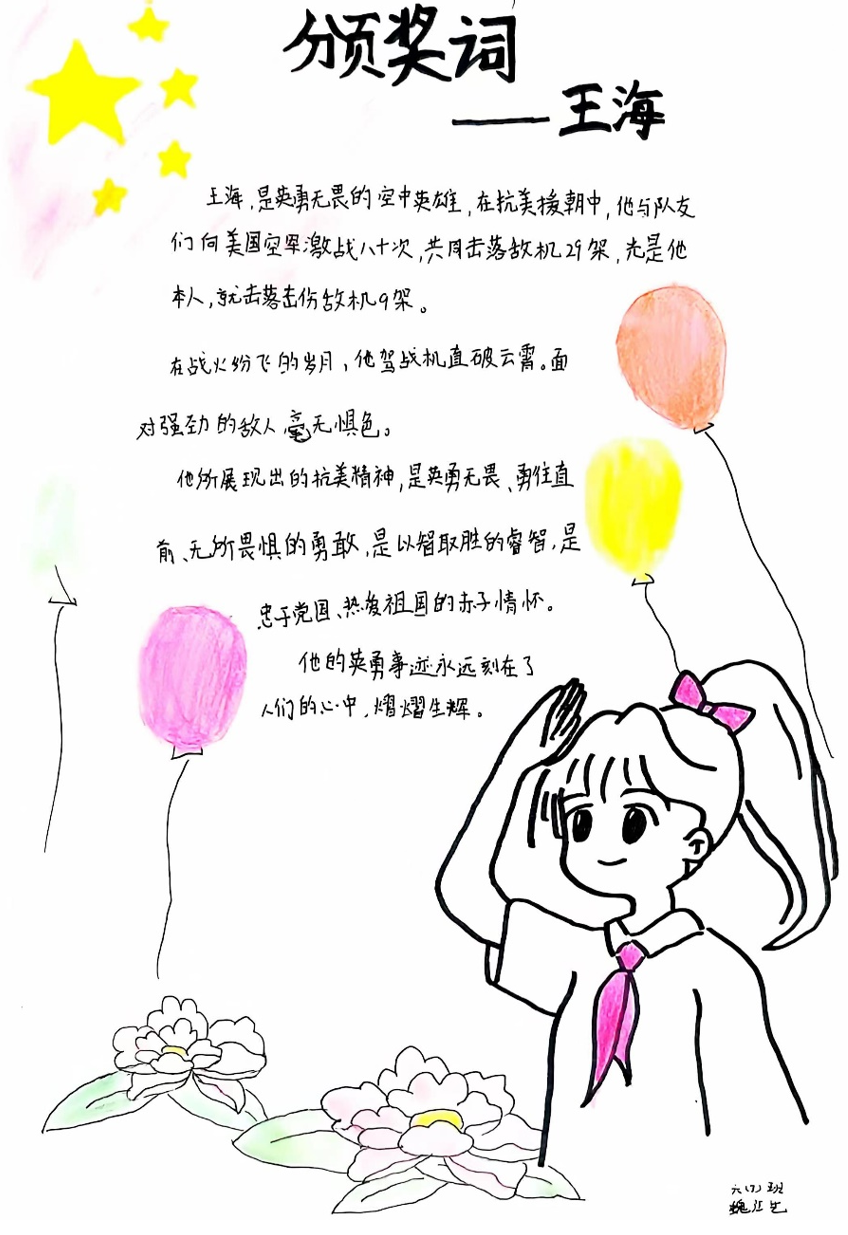 颁奖词
——王海
王海,是英勇无畏的空中英雄,在抗美援朝中,他与队友
们向美国空军激战八十次,共同击落敌机29架,光是他
本人,就击落击伤敌机9架。
在战火纷飞的岁月,他驾战机直破云霄。面
对强劲的敌人毫无惧色。
他所展现出的抗美精神,是英勇无畏、勇往直
前、无所畏惧的勇敢,是以智取胜的睿智,是
忠于党国、热爱祖国的赤子情怀。
他的英勇事迹永远刻在了
人们的心中,熠熠生辉。
班
魏